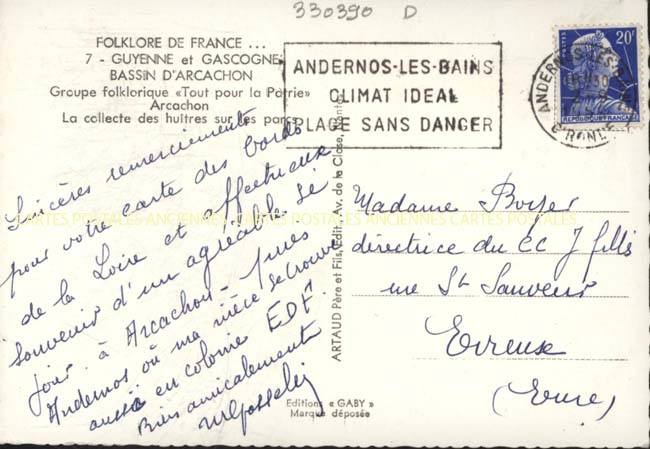 330390 D
FOLKLORE DE FRANCE ...
7 - GUYENNE et GASCOGNE
BASSIN D'ARCACHON
Groupe folklorique «Tout pour la Patrie»
Arcachon
La collecte des huîtres sur les parcs
ANDERNOS-LES-BAINS
CLIMAT IDEAL
PLAGE SANS DANGER
ANDERNOS-LES-B
GIRONDE
POSTES
20F
REPUBLIQUE FRANÇAISE
Sincères remerciements
pour votre carte des bords
de la Loire et affectueux
souvenir d'un agréable sé
jour à Arcachon - puis
Andernos où ma nièce se trouve
aussi en colonie EDF.
Bien amicalement
ARTAUD Père et Fils, Edit., Av. de la Close, Nantes
Editions « GABY »
Marque déposée
Madame Boyer
directrice du CC J filles
rue St Sauveur
Evreux
(Eure)
CARTES POSTALES ANCIENNES CARTES POSTALES ANCIENNES CARTES POSTALES